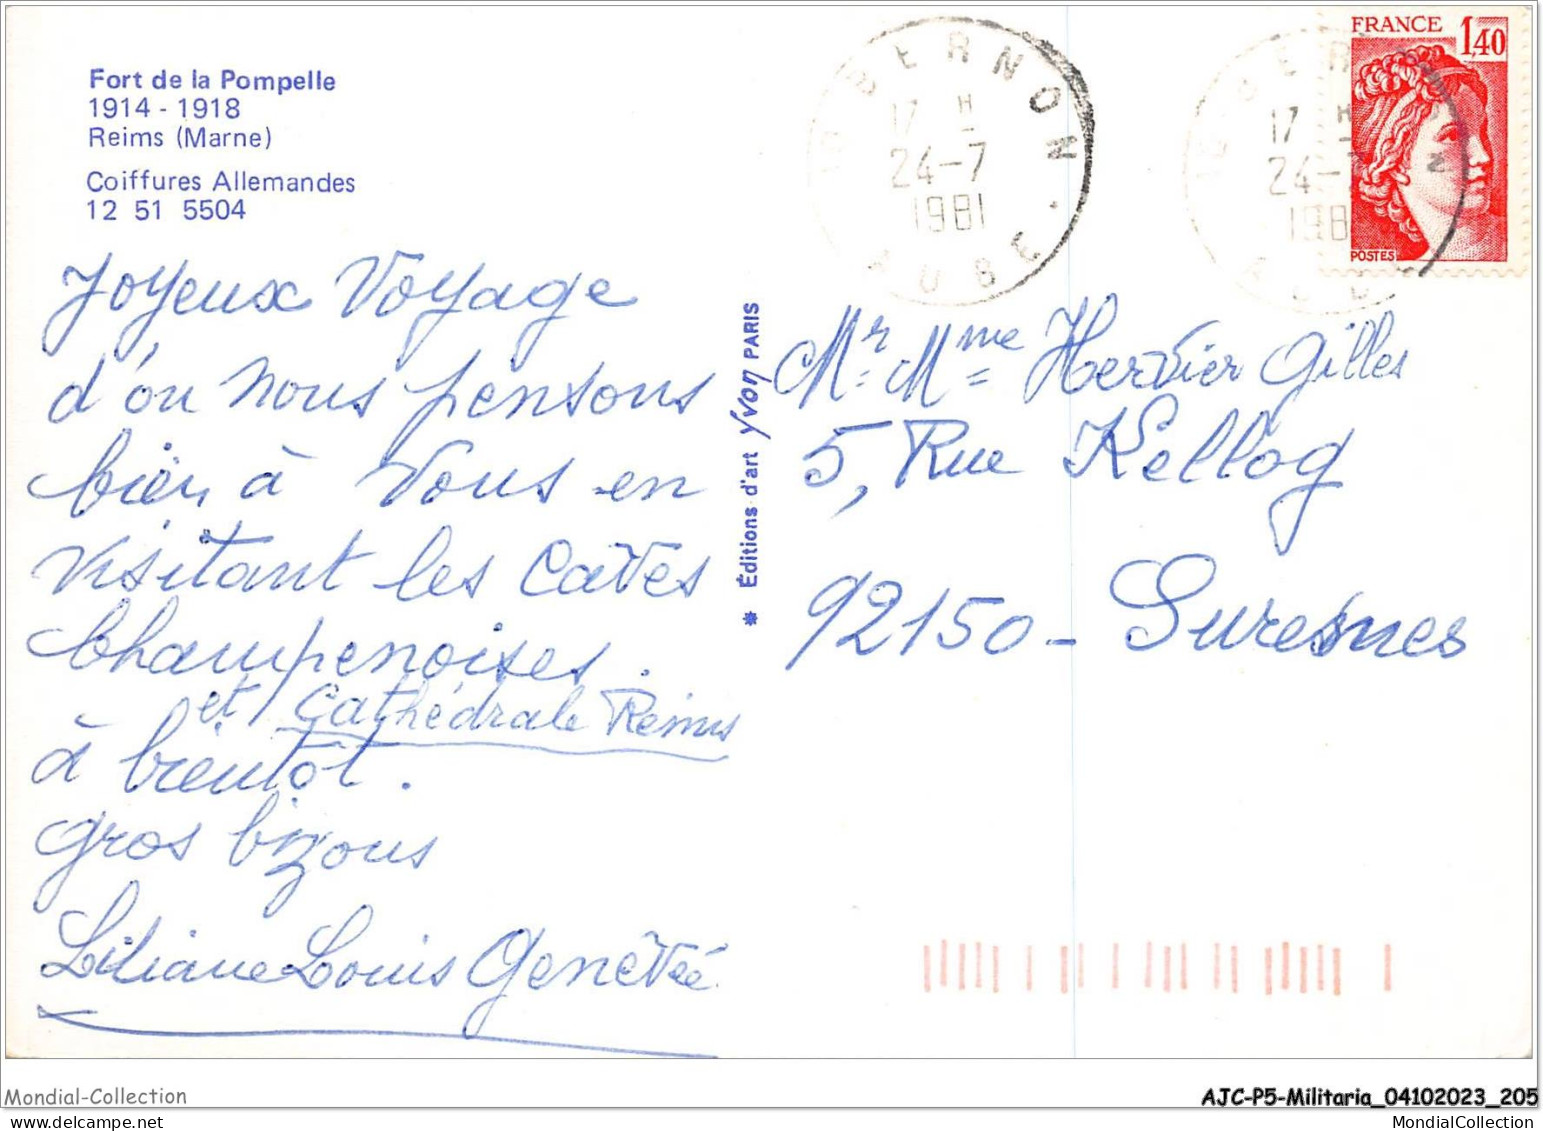 Fort de la Pompelle
1914 - 1918
Reims (Marne)
Coiffures Allemandes
12 51 5504
Joyeux Voyage
d'ou nous pensons
bien à Vous en
visitant les Caves
Champenoises.
et Cathédrale Reims
à bientôt.
gros bizous
Liliane Louis
* Éditions d'art yvon PARIS
10 BERNON
17 H
24-7
1981
AUBE
17 H
24-
198
FRANCE
1,40
POSTES
Mr. Mme = Hervier Gilles
5, Rue Kellog
92150 - Suresnes
Mondial-Collection
AJC-P5-Militaria_04102023_205
MondialCollection